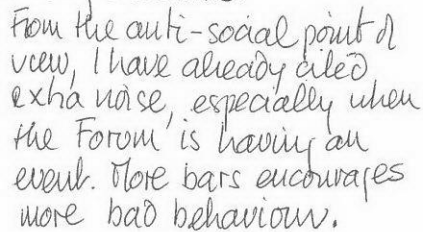 From the anti-social point of
view, I have already cited
extra noise, especially when
the Forum is having an
event. More bars encourages
more bad behaviour.